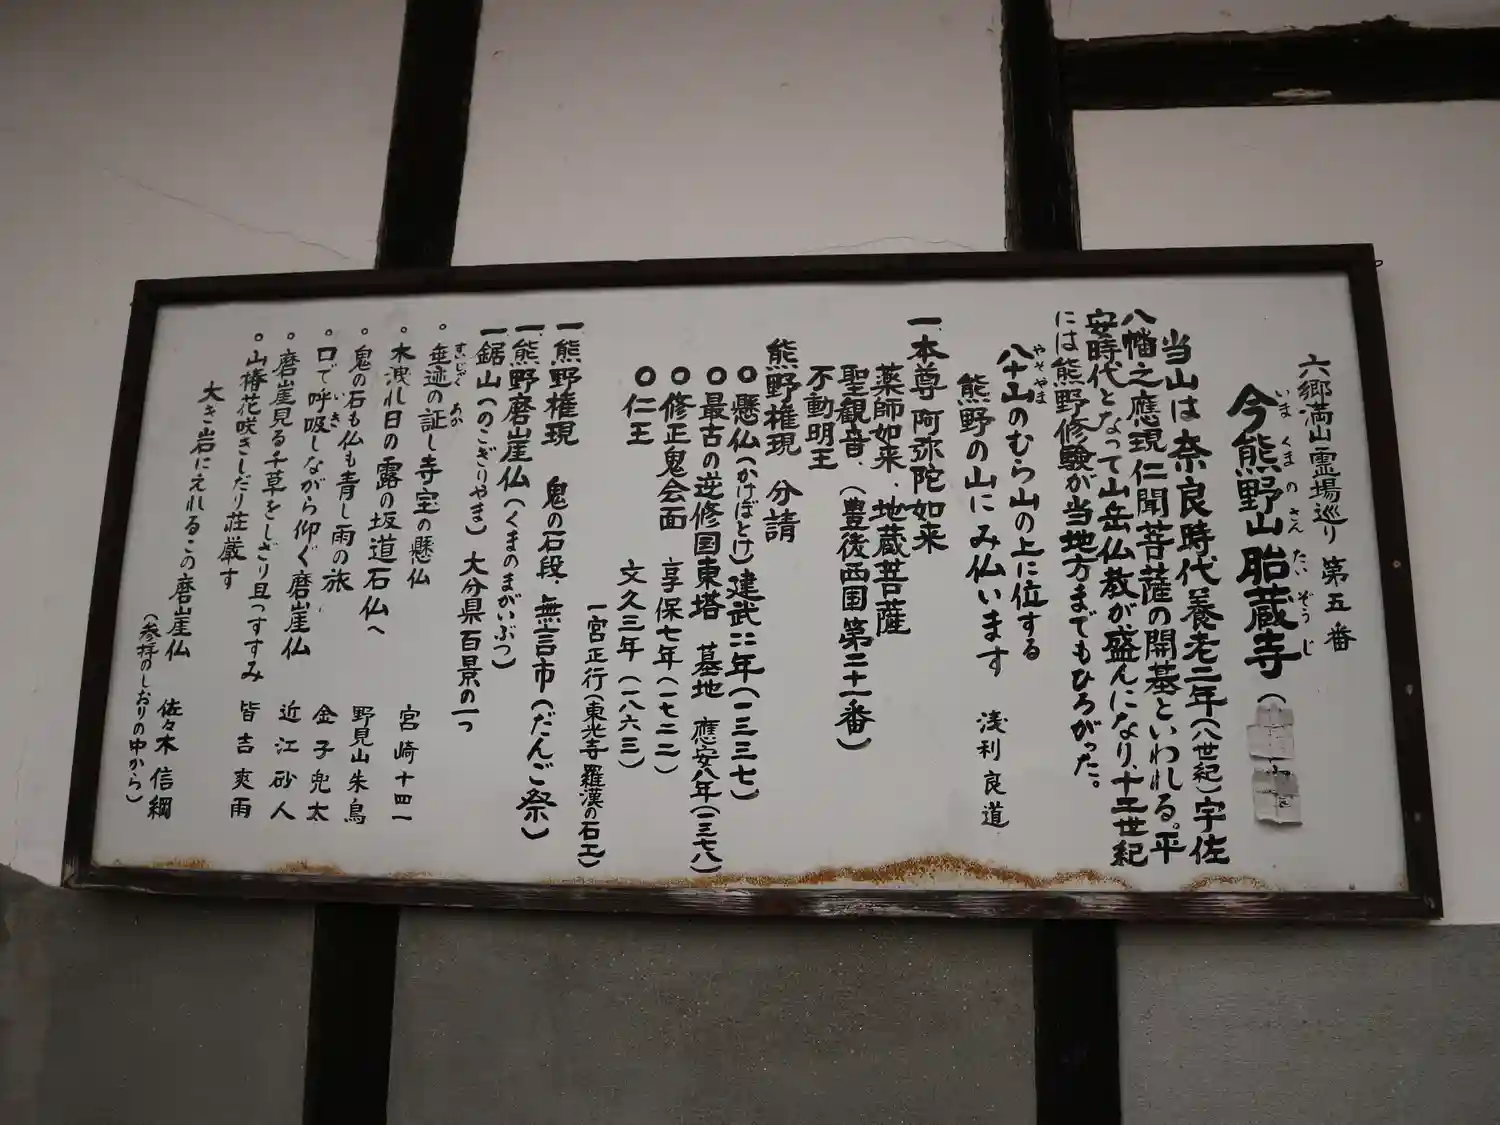 六郷満山霊場巡り 第五番
いま くま の さん たい ぞう じ
今熊野山胎蔵寺(
当山は奈良時代養老二年(八世紀)宇佐
八幡之應現仁聞菩薩の開基といわれる。平
安時代となって山岳仏教が盛んになり、十二世紀
には熊野修験が当地方までもひろがった。
やそやま
八十山のむら山の上に位する
熊野の山にみ仏います 浅利良道
一、本尊 阿弥陀如来
薬師如来、地蔵菩薩
聖観音、(豊後西国第二十一番)
不動明王
熊野権現 分請
○懸仏(かけぼとけ)建武二年(一三三七)
○最古の逆修国東塔 墓地 應安八年(一三七八)
○修正鬼会面 享保七年(一七二二)
○仁王 文久三年(一八六三)
一宮正行(東光寺羅漢の石工)
一、熊野権現 鬼の石段 無言市(だんご祭)
一、熊野磨崖仏(くまのまがいぶつ)
一、鋸山(のこぎりやま)大分県百景の一つ
すいじゃく あか
。垂迹の証し寺宝の懸仏
。木洩れ日の露の坂道石仏へ 宮崎十四一
。鬼の石も仏も青し雨の旅 野見山朱鳥
いき
。口で呼吸しながら仰ぐ磨崖仏 金子兜太
。磨崖見る千草をしざり且つすすみ 近江砂人
。山椿花咲きしだり荘厳す 皆吉爽雨
大き岩にえれるこの磨崖仏 佐々木信綱
(参拝のしおりの中から)